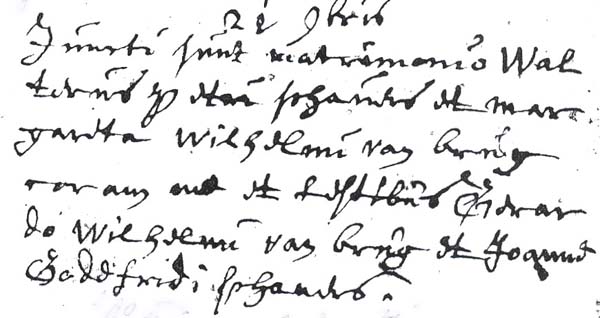 22 9bris
Juncti sunt matrimonio Wal
terus Petri schaners et mar
gareta Wilhelmi van brug
coram me et testibus Gerar
do Wilhelmi van brug et Joanne
Goddfridi schaners.